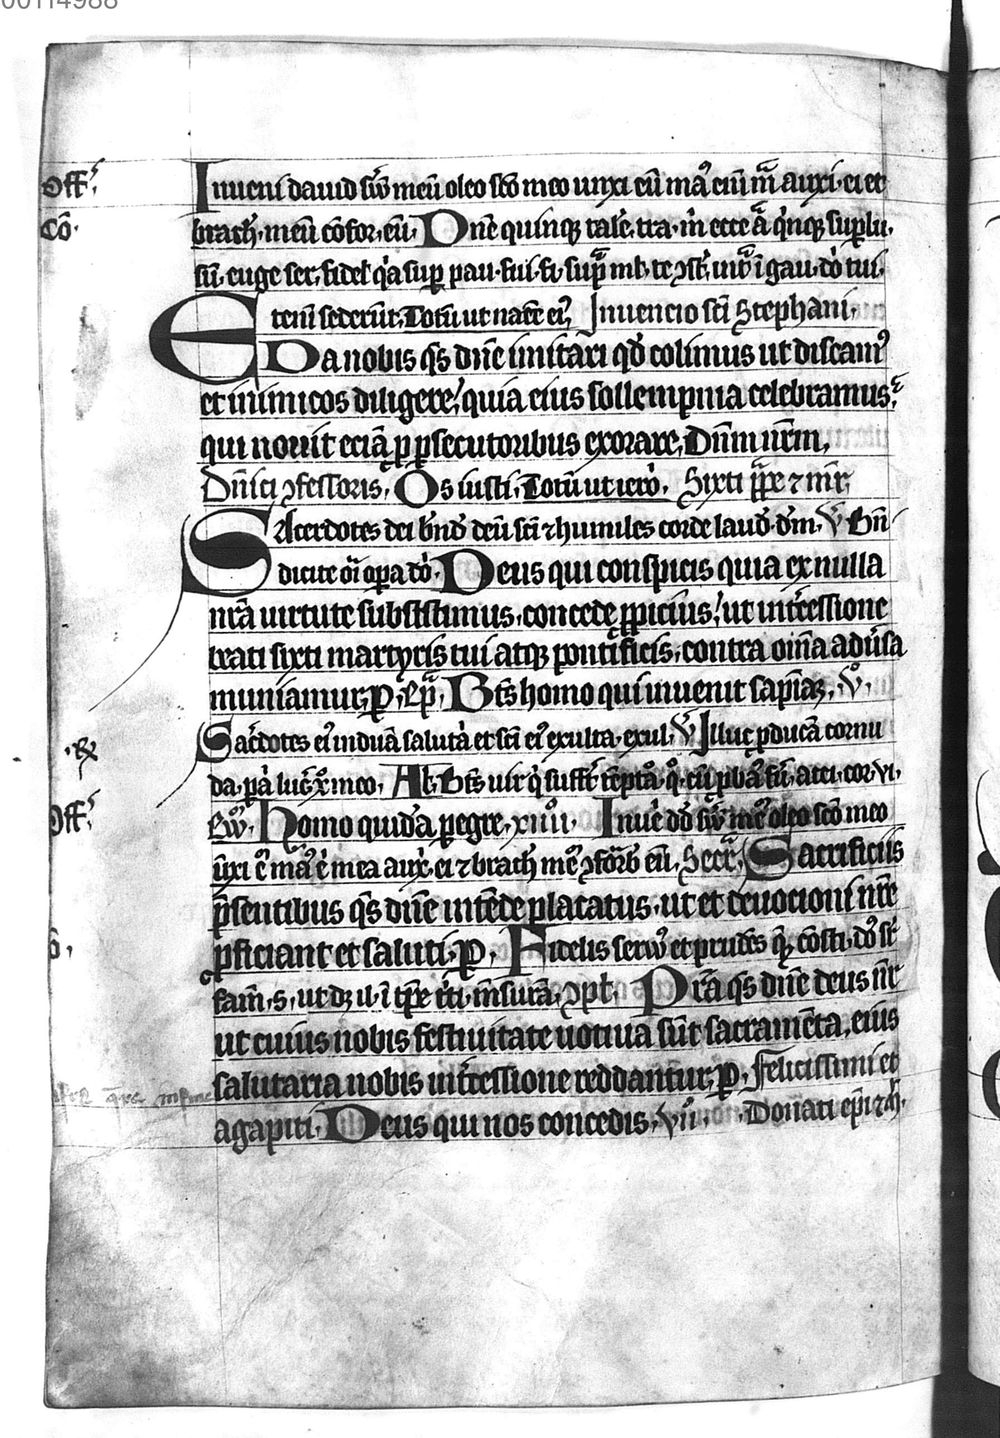 00114988
Off̃ Inueni dauid ẜuũ meũ oleo sc̃o meo unxi eũ maꝰ eni m̃ auxi· ei et
Cõ· brach· meũ cõfor, eũ, Dñe quinqꝫ tale, tra· m̃ ecce a̾ qinqꝫ suꝑlu·
sũ, euge ser, fidel̃ qͥa suꝑ pau· fui· fi, supͣ ml̃· te ɔst, int̃ ĩ gau· dõ tui,
Eteni sederũt, Totũ ut nat̃e eiꝰ, Inuencio sc̃i Stephani,
Da nobis q̃s dñe imitari qd̃ colimus ut discamꝰ
et inimicos diligere, quia eius sollempnia celebramus,
qui nouit eciã ꝓ ꝑsecutoribus exorare, Dñm nr̃m,
Dñici ɔfessoris, Os iusti, Totũ ut iero, Sixti ꝑpe ⁊ mr̃,
Sacerdotes dei bñd deũ sc̃i ⁊ humiles corde laud· dm̃, V̾ Bñ
dicite oĩ oꝑa dõ, Deus qui conspicis quia ex nulla
nr̃a uirtute subsistimus, concede ꝓpicius, ut int̃cessione
beati sixti martyris tui atqꝫ pontificis, contra om̃ia adũsa
muniamur, ꝑ, Ep̃a, Bt̃s homo qui inuenit sapĩaꝫ, V̾,
℞ Sac̃dotes eiꝰ induã saluta et sc̃i eiꝰ exulta· exul, V̾ Illuc ꝓducã cornu
da, pa̾ luc̃ xͦ meo, Al̃, Bt̃s uir qͥ suff̃t tẽpta, qͦ, cũ ꝓbaꝰ fũ, acci, cor· vi,
Off̃ Ewͦ, Homo quida ꝑegre, xiiii, Inue dd̃ ẜuũ meꝰ oleo sc̃o meo
ũxi eꝰ maꝰ e̾ mea aux̾, ei ⁊ brach̃ meꝰ ɔforb̃ eũ, Secr̃, Sacrificiis
p̃sentibus q̃s dñe intẽde placatus, ut et deuocioni nr̃e
õ, ꝓficiant et saluti, ꝑ, Fidelis seruꝰ et prudẽs qͣꝫ cõsti, dõꝰ suꝑ
fam̃, s, ut dꝫ il· ĩ tp̃e tt̃i, m̃surã, Ɔpl̃, Pr̃a q̃s dñe deus nr̃
ut cuius nobis festiuitate uotiua sũt sacramẽta, eius
salutaria nobis int̃cessione reddantur, ꝑ, Felicissimi et
agapiti, Deus qui nos concedis, vii, Donati ep̃i ⁊ m̃,